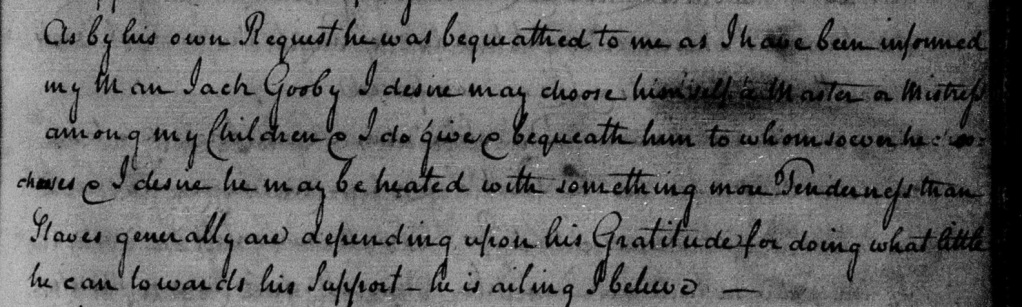 As by his own Request he was bequeathed to me as I have been informed
my Man Jack Gooby I desire may choose himself a Master or Mistress
among my Children & I do give & bequeath him to whomsoever he
chuses & I desire he may be treated with something more Tenderness than
Slaves generally are depending upon his Gratitude for doing what little
he can towards his Support – he is ailing I believe —